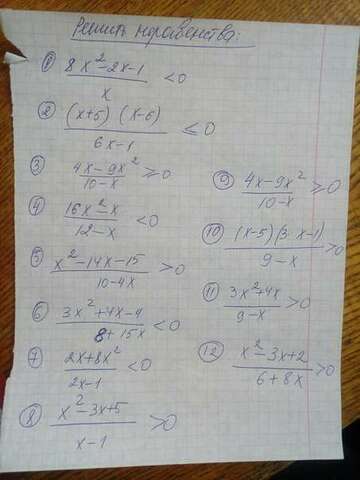 Решить неравенства:
① (8x²-2x-1)/x <0
② ((x+5) (x-6))/(6x-1) ≤0
③ (4x-9x²)/(10-x) ≥0
④ (16x²-x)/(12-x) <0
⑤ (x²-14x-15)/(10-4x) >0
⑥ (3x²+4x-4)/(8+15x) <0
⑦ (2x+8x²)/(2x-1) <0
⑧ (x²-3x+5)/(x-1) >0
⑨ (4x-9x²)/(10-x) ≥0
⑩ ((x-5)(3x-1))/(9-x) >0
⑪ (3x²+4x)/(9-x) >0
⑫ (x²-3x+2)/(6+8x) >0